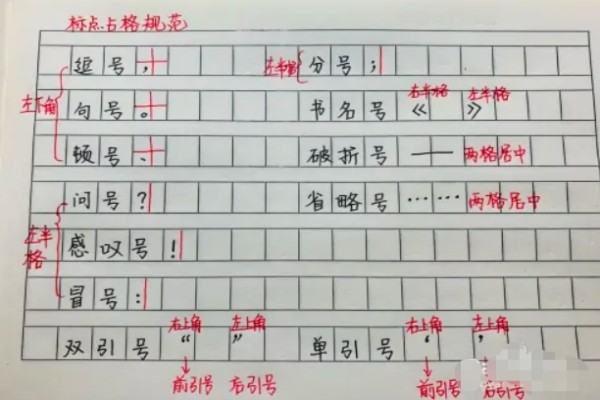 标点占格规范
逗号， 左半格 分号；
左下角 句号。 书名号 右半格《 左半格》
顿号、 破折号 —— 两格居中
问号？ 省略号 …… 两格居中
左半格 感叹号！
冒号：
双引号 右上角“ 左上角” 单引号 右上角‘ 左上角’
前引号 后引号 前引号 后引号